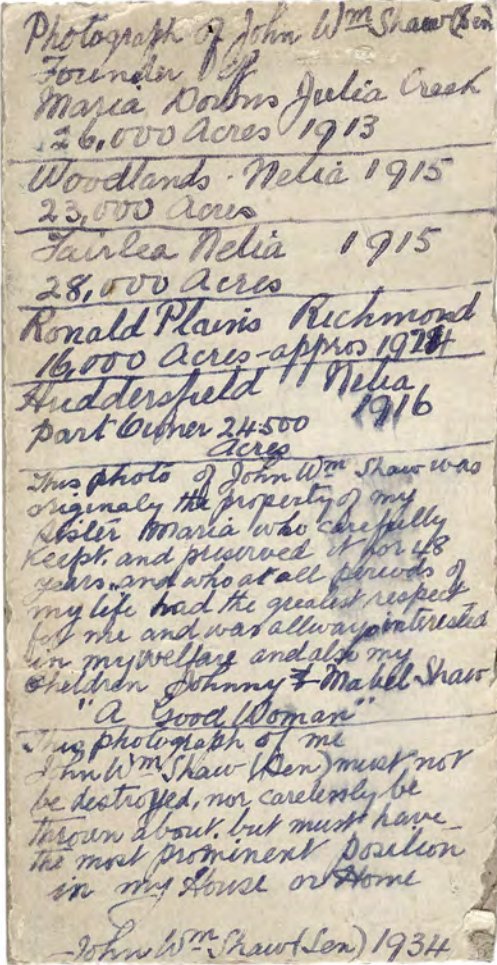 Photograph of John Wm Shaw (Sen)
Founder of
Maria Downs Julia Creek
26,000 Acres 1913
Woodlands - Nelia 1915
23,000 Acres
Fairlea Nelia 1915
28,000 Acres
Ronald Plains Richmond
16,000 Acres - appros
Huddersfield Nelia
1916
Part Owner 24500
Acres
This photo of John Wm Shaw was
originaly the property of my
Sister Maria who carefully
Keept. and preserved it for 48
years. and who at all periods of
my life had the greatest respect
for me and was allways interested
in my welfare and also my
children Johnny & Mabel Shaw
"A Good Woman"
This photograph of me
John Wm Shaw (Sen) must not
be destroyed, nor carelessly be
thrown about. but must have
the most prominent position
in my House or Home
John Wm Shaw (Sen) 1934